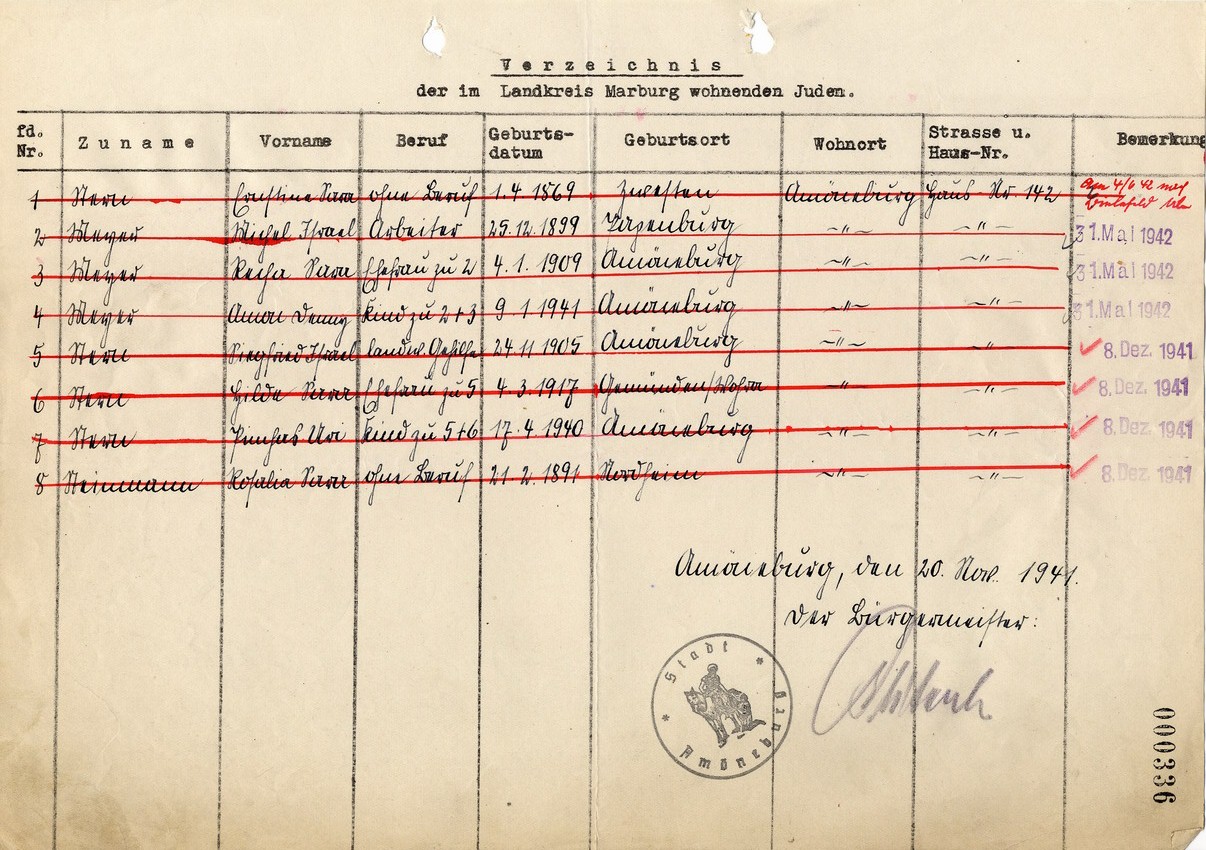 Verzeichnis
der im Landkreis Marburg wohnenden Juden.
fd. Nr. Zuname Vorname Beruf Geburts-datum Geburtsort Wohnort Strasse u. Haus-Nr. Bemerkung
1 Stern Sara ohne Beruf 1.4.1869 Zwesten Amöneburg Haus Nr. 142 Am 4/6 42 nach
2 Meyer Michel Israel Arbeiter 25.12.1899 -"- -"- 31. Mai 1942
3 Meyer Recha Sara Ehefrau zu 2 4.1.1909 Amöneburg -"- -"- 31. Mai 1942
4 Meyer Denny Kind zu 2+3 9.1.1941 Amöneburg -"- -"- 31. Mai 1942
5 Stern Siegfried Israel landw. Gehilfe 24.11.1905 Amöneburg -"- -"- 8. Dez. 1941
6 Stern Hilda Sara Ehefrau zu 5 4.3.1917 Gemünden/Wohra -"- -"- 8. Dez. 1941
7 Stern Pinhas Uri Kind zu 5+6 17.4.1940 Amöneburg -"- -"- 8. Dez. 1941
8 Steinmann Rosalia Sara ohne Beruf 21.2.1891 Nordheim -"- -"- 8. Dez. 1941
Amöneburg, den 20. Nov. 1941.
Der Bürgermeister:
Stadt Amöneburg
000336